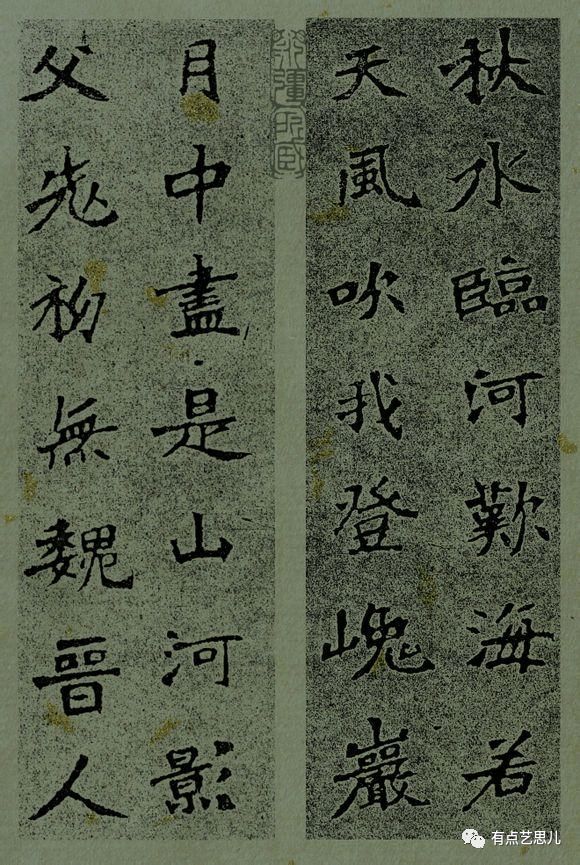 秋水臨河歎海若
天風吹我登嵬巖
月中盡是山河影
父老初無魏晉人
有点艺思儿